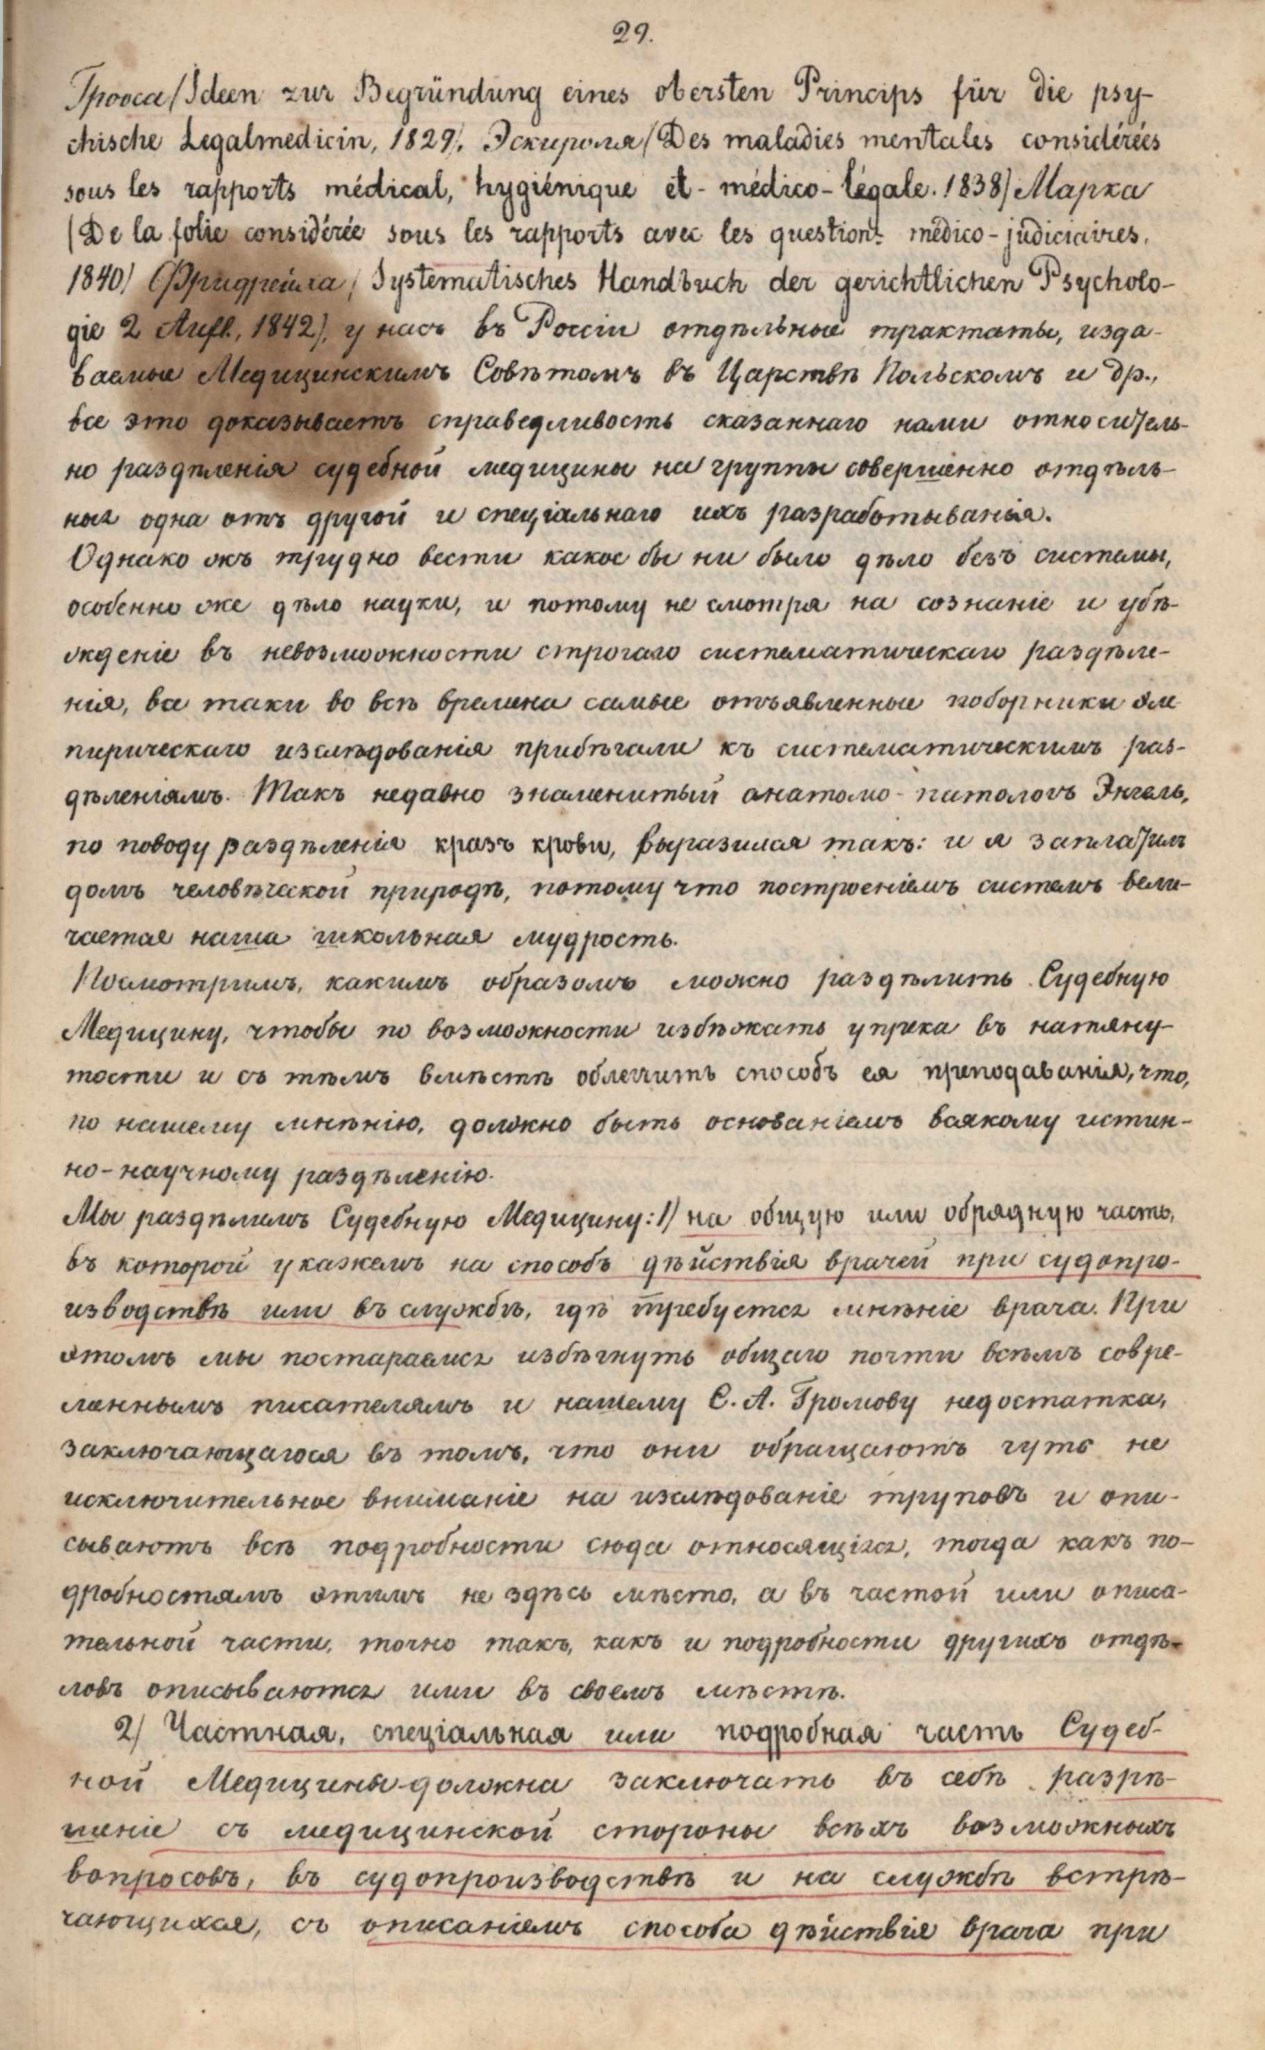 29.
Грооса/Ideen zur Begründung eines obersten Princips für die psy-
chische Legalmedicin, 1829/, Эскироля/Des maladies mentales considérées
sous les rapports médical, hygiénique et-médico-légale. 1838/ Марка
/De la folie considérée sous les rapports avec les question: médico-judiciaires.
1840/ Фридрейха/Systematisches Handbuch der gerichtlichen Psycholo-
gie 2 Aufl, 1842/, у насъ въ Россіи отдѣльные трактаты, изда-
ваемые Медицинскимъ Совѣтомъ въ Царствѣ Польскомъ и др.,
все это доказываетъ справедливость сказаннаго нами относитель-
но раздѣленія судебной медицины на группы совершенно отдѣль-
ныя одна отъ другой и спеціальнаго ихъ разработыванья.
Однако жъ трудно вести какое бы ни было дѣло безъ системы,
особенно же дѣло науки, и потому не смотря на сознаніе и убѣ-
жденіе въ невозможности строгаго систематическаго раздѣле-
нія, все таки во всѣ времена самые отъявленные поборники эм
пирическаго изслѣдованія прибѣгали къ систематическимъ раз-
дѣленіямъ. Такъ недавно знаменитый анатомо-патологъ Энгель,
по поводу раздѣленія кразъ крови, выразился такъ: и я заплатилъ
долгъ человѣческой природѣ, потому что построеніемъ системъ вели-
чается наша школьная мудрость.
Посмотримъ, какимъ образомъ можно раздѣлить Судебную
Медицину, чтобы по возможности избѣжать упрека въ натяну-
тости и съ тѣмъ вмѣстѣ облегчить способъ ея преподаванія, что,
по нашему мнѣнію, должно быть основаніемъ всякому истин-
но-научному раздѣленію.
Мы раздѣлимъ Судебную Медицину: 1/ на общую или обрядную часть,
въ которой укажемъ на способъ дѣйствія врачей при судопро-
изводствѣ или въ службѣ, гдѣ требуется мнѣніе врача. При
этомъ мы постараемся избѣгнуть общаго почти всѣмъ совре-
меннымъ писателямъ и нашему С. А. Громову недостатка,
заключающагося въ томъ, что они обращаютъ чуть не
исключительное вниманіе на изслѣдованіе труповъ и опи-
сываютъ всѣ подробности сюда относящіяся, тогда какъ по-
дробностямъ этимъ не здѣсь мѣсто, а въ частой или описа-
тельной части, точно такъ, какъ и подробности другихъ отдѣ-
ловъ описываются ими въ своемъ мѣстѣ.
2/ Частная, спеціальная или подробная часть Судеб-
ной Медицины должна заключать въ себѣ разрѣ-
шеніе съ медицинской стороны всѣхъ возможныхъ
вопросовъ, въ судопроизводствѣ и на службѣ встрѣ-
чающихся, съ описаніемъ способа дѣйствія врача при